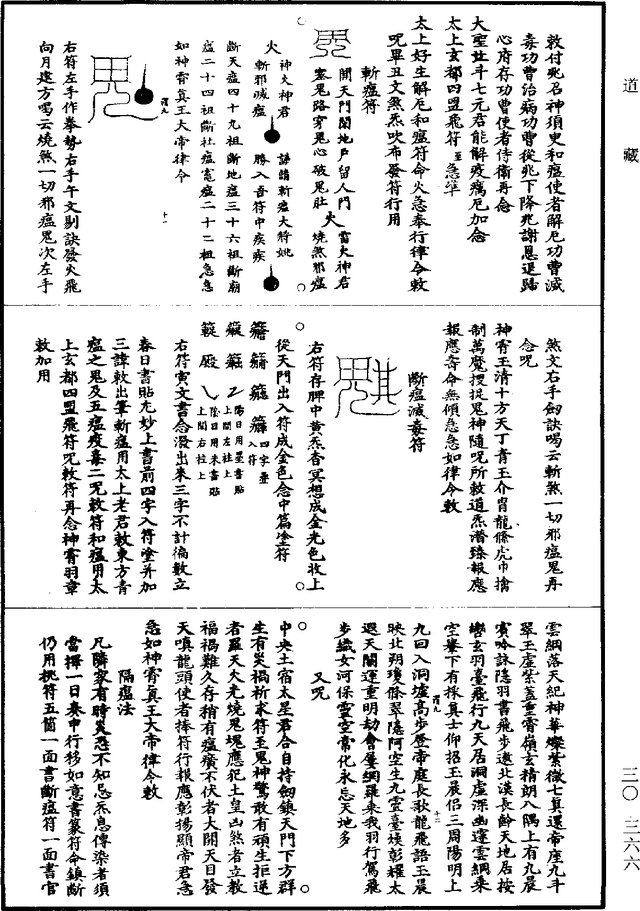 道藏
敕付兆名神須臾和瘟使者解厄功曹滅
毒功曹治病功曹從兆下降兆謝恩退歸
心府存功曹使者侍衛再念
大聖北斗七元君能解疫癘厄加念
太上玄都四盟飛符至急準
太上好生解厄和瘟符命火急奉行律令敕
呪畢丑文煞炁吹布發符行用
斬瘟符
開天門閉地戶留人門 雷火神君
塞鬼路穿鬼心破鬼肚 火 燒煞邪瘟
火 神火神君 謹請斬瘟大將姚
斬邪滅瘟 騰入吾符中疾疾
斷天瘟四十九祖斷地瘟三十六祖斷廟
瘟二十四祖斷社瘟竈瘟二十二祖急急
如神霄真王大帝律令
十一
右符左手作拳勢右手午文剔訣發火飛
向月建方喝云燒煞一切邪瘟鬼次左手
煞文右手劍訣喝云斬煞一切邪瘟鬼再
念呪
神霄玉清十方天丁青玉介冑龍絛虎巾擒
制萬魔搜捉鬼神隨呪所敕道炁潛臻報應
報應壽命無傾急急如律令敕
斷瘟滅毒符
右符存脾中黃炁杳冥想成金光色收上
從天門出入符成金色念中篇塗符
四字塗入符
陽日用墨書貼上間左柱上
陰日用朱書貼上間右柱上
右符寅文書念潑出來三字不計徧數立
春日書貼尤妙上書前四字入符塗并加
三諱敕出筆斬瘟用太上老君敕東方青
瘟之鬼及五瘟疫毒二呪敕符和瘟用太
上玄都四盟飛符呪敕符再念神霄羽章
敕加用
雲綱落天紀神華燦紫微七真還帝座九斗
翠玉虛紫蓋重霄嶺玄精朗八隅上有九晨
賓吟詠隱羽書飛步遨北漢長齡天地居按
轡玄羽臺飛行九天居洞虛深幽邃雲綱來
空輦下有採真士仰招玉晨侶三周陽明上
九回入洞墟高步登帝庭長歌龍飛語玉晨
十二
映北朔瓊絛翠隱阿空生九靈臺煥彰耀太
遐天闕運重明劫會屢綱羅乘我羽行駕飛
步織女河保靈空常化永忘天地多
又呪
中央土宿太星君合自持劍鎮天門下方群
生有災禍祈求符至鬼神驚敢有頑生拒逆
者羅天火光燒鬼塊應犯土皇凶煞者立教
福禍難久存稍有瘟癀不伏者大開天目發
天嗔龍頭使者捧符行報應彰揚顯帝君急
急如神霄真王大帝律令敕
隔瘟法
凡鄰家有時炎恐不知忌系息傳染者須
當擇一日奏申行移如意書篆符命鎮斷
仍用桃符五箇一面書斷瘟符一面書官
三〇·三六六